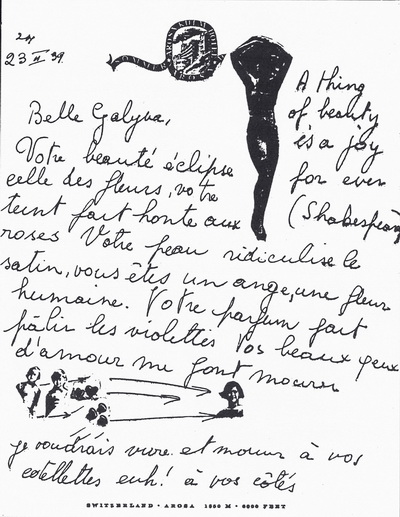 24
23 II 99.
A thing
of beauty
is a joy
for ever
(Shakespeare
Belle Galyna,
Votre beauté éclipse
celle des fleurs, votre
teint fait honte aux
roses Votre peau ridiculise le
satin, vous êtes un ange, une fleur
humaine. Votre parfum fait
pâlir les violettes Vos beaux yeux
d'amour me font mourir
je voudrais vivre et mourir à vos
cotellettes euh! à vos côtés
SWITZERLAND · AROSA 1800 M · 6000 FEET